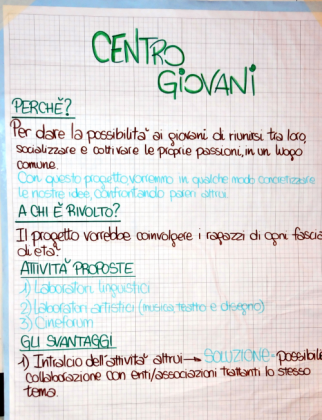 CENTRO
GIOVANI
PERCHÈ?
Per dare la possibilità ai giovani di riunirsi tra loro,
socializzare e coltivare le proprie passioni, in un luogo
comune.
Con questo progetto vorremmo in qualche modo concretizzare
le nostre idee, confrontando pareri altrui.
A CHI È RIVOLTO?
Il progetto vorrebbe coinvolgere i ragazzi di ogni fascia
di età.
ATTIVITÀ PROPOSTE
1) Laboratori linguistici
2) Laboratori artistici (musica, teatro e disegno)
3) Cineforum
GLI SVANTAGGI
1) Intralcio dell'attività altrui → SOLUZIONE = possibile
collaborazione con enti/associazioni trattanti lo stesso
tema.